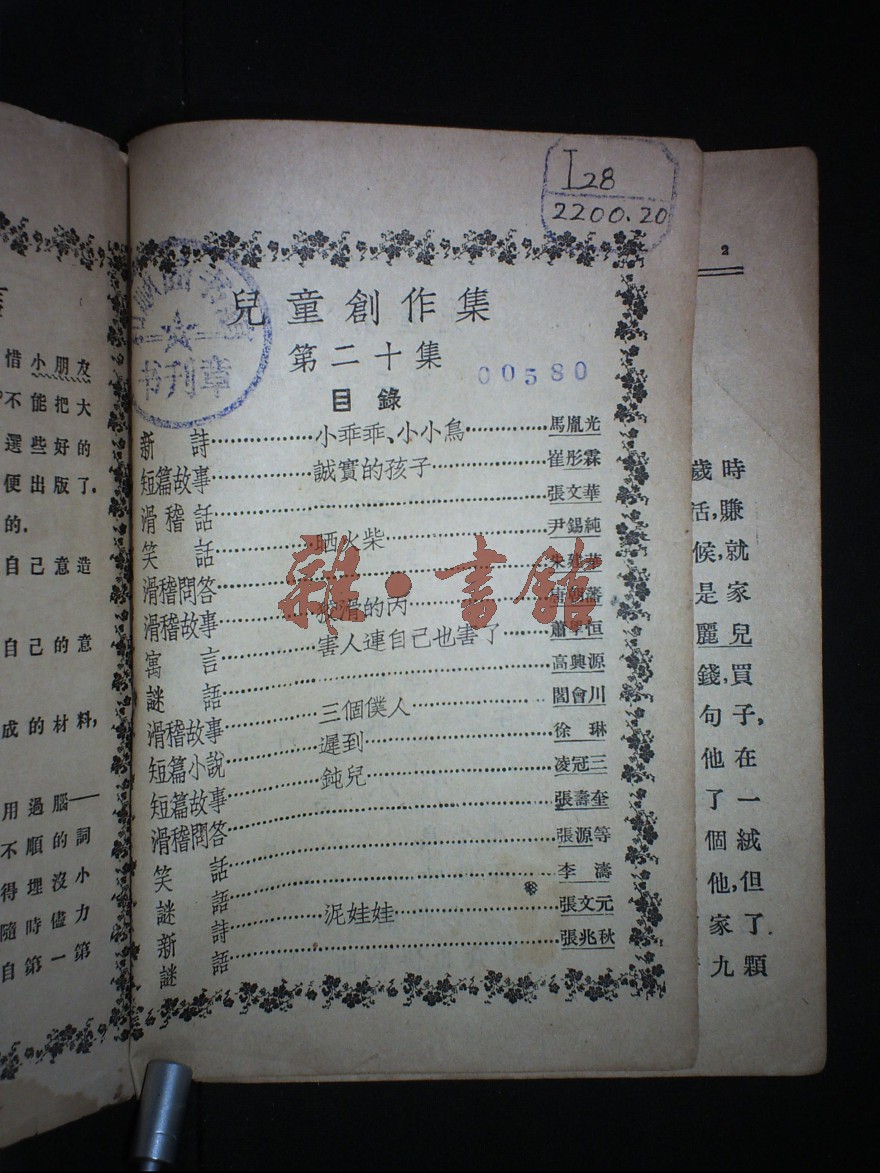 I28
2200.20
兒童創作集
第二十集
00580
目錄
新詩……小乖乖、小小鳥……馬胤光
短篇故事……誠實的孩子……崔彤霖
滑稽話……張文華
笑話……晒火柴……尹錫純
滑稽問答……朱
滑稽故事……狡滑的丙……唐
寓言……害人連自己也害了……蕭 恒
謎語……高興源
滑稽故事……三個僕人……閻會川
短篇小說……遲到……徐琳
短篇故事……鈍兒……凌冠三
滑稽問答……張壽奎
笑話……張源等
謎語……李濤
新詩……泥娃娃……張文元
謎語……張兆秋
书刊章
雜·書館
惜小朋友
不能把大
選些好的
便出版了.
的.
自己意造
自己的意
成的材料,
用過腦——
不順的詞
得埋沒小
隨時儘力
自第一第
2
歲時
活,賺
候,就
是家
麗兒
錢,買
句子,
他在
了一
個絨
他,但
家了.
九顆